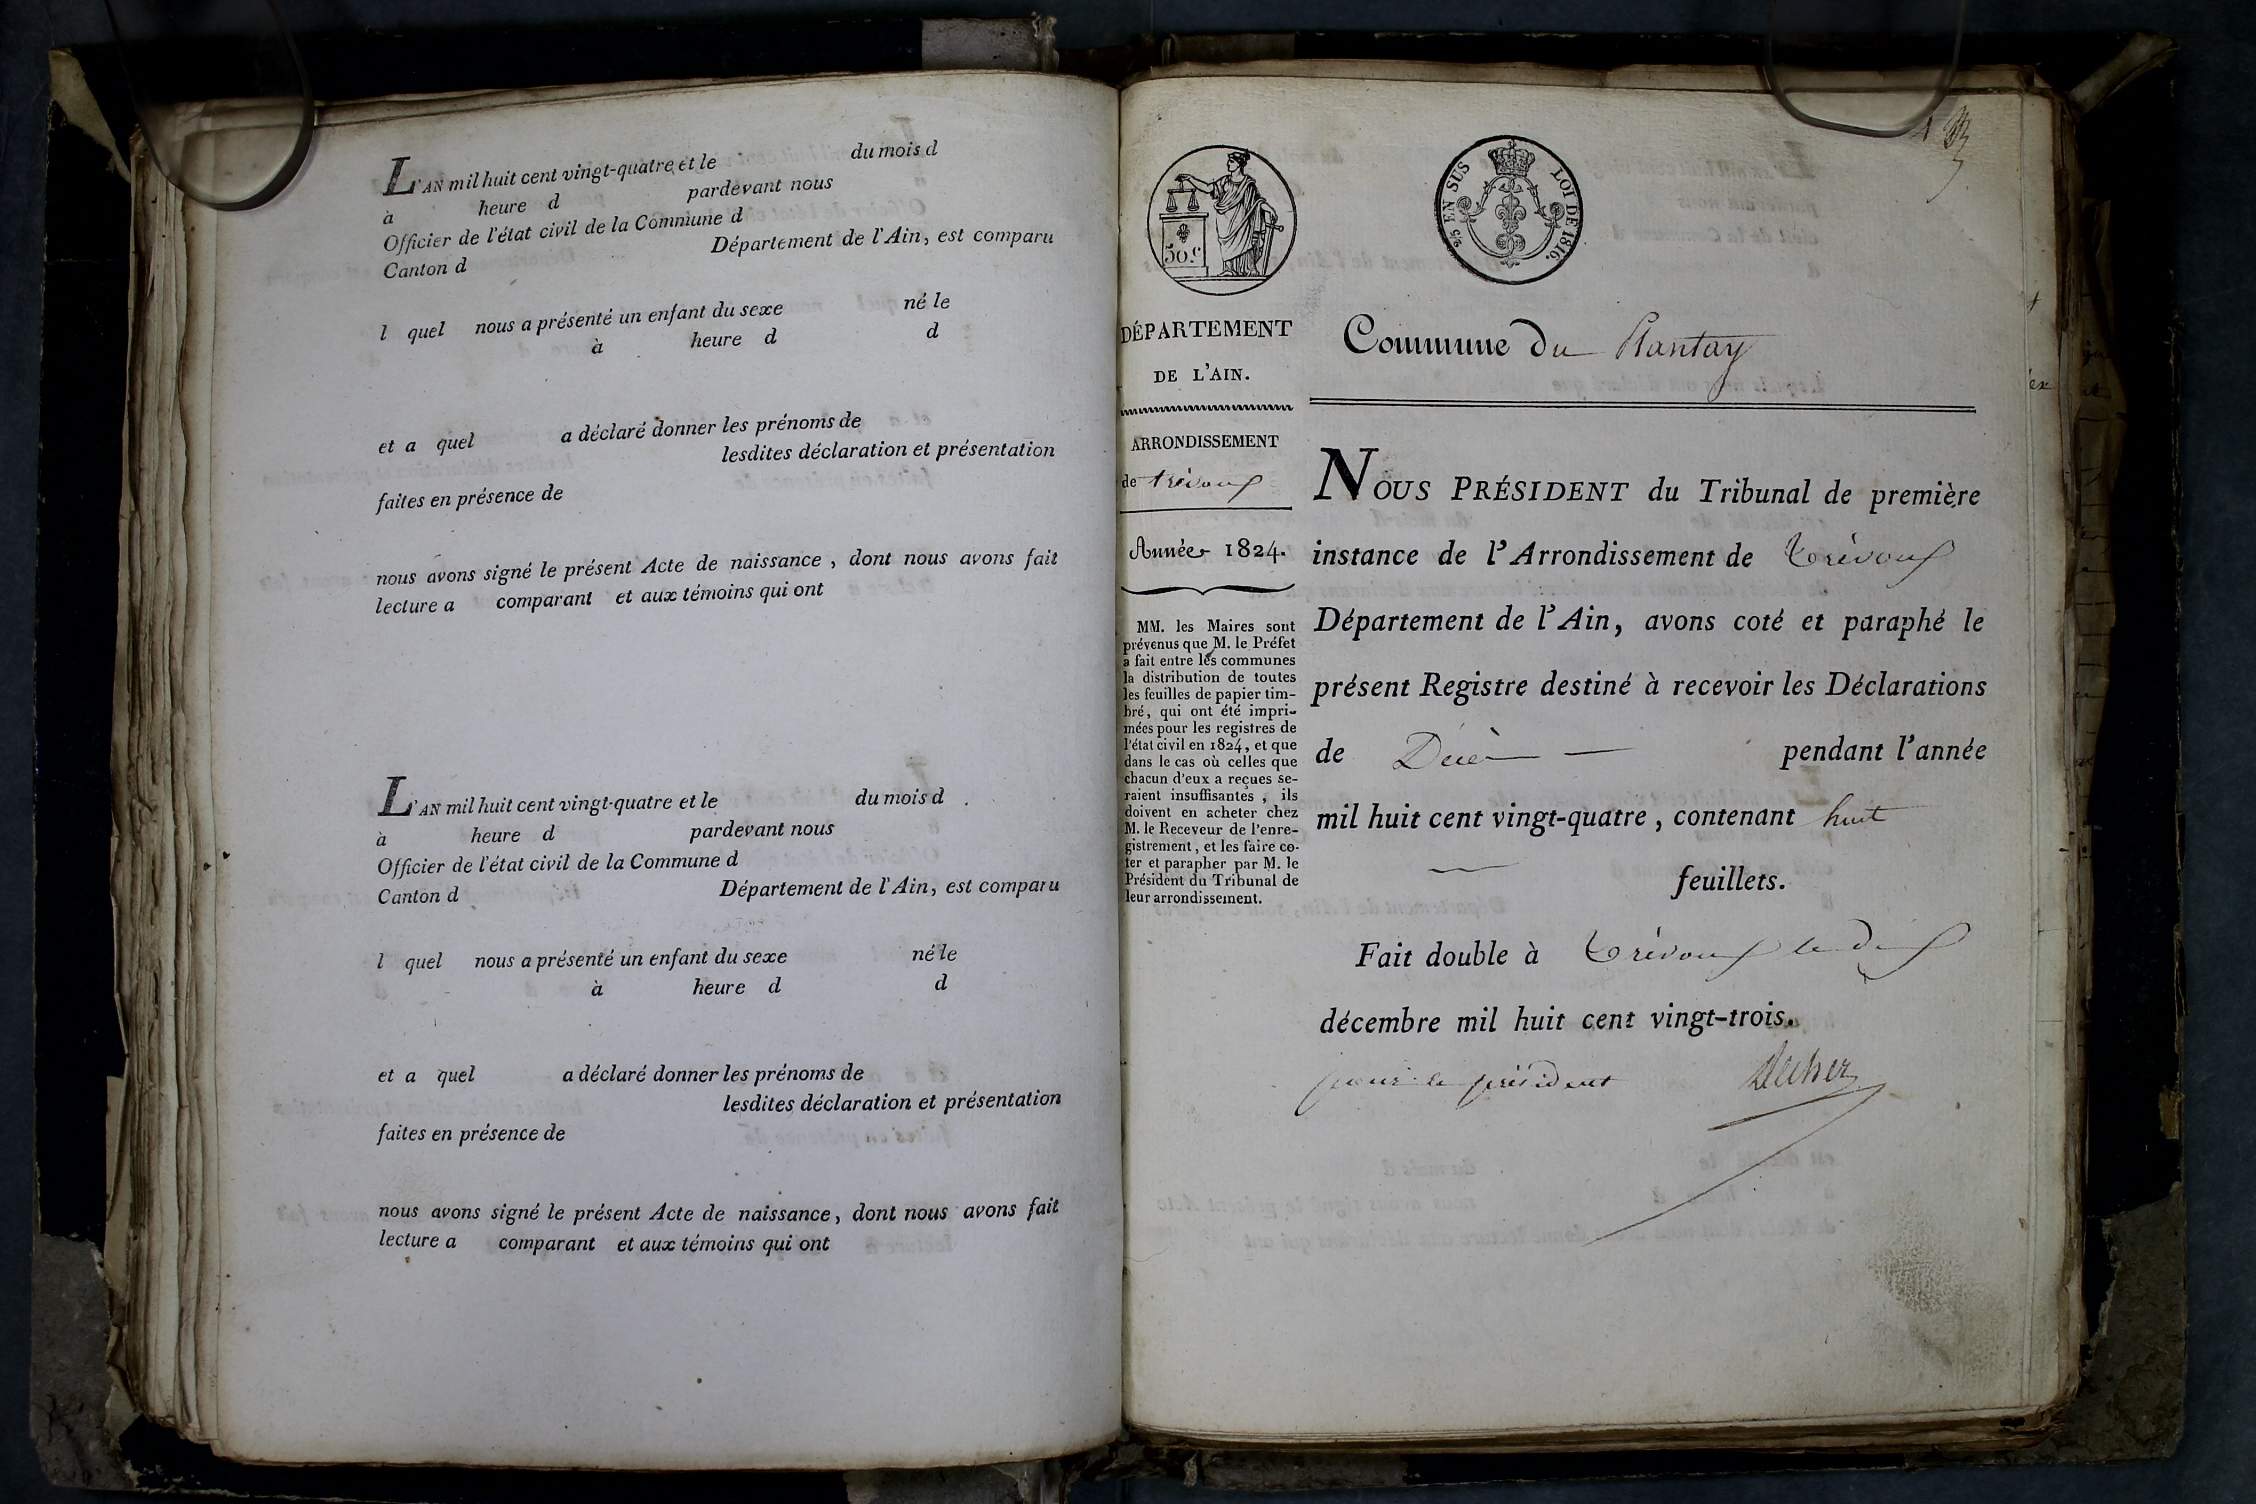 L'AN mil huit cent vingt-quatre et le du mois d
à heure d pardevant nous
Officier de l'état civil de la Commune d
Canton d Département de l'Ain, est comparu
l quel nous a présenté un enfant du sexe né le
à heure d d
et a quel a déclaré donner les prénoms de
lesdites déclaration et présentation
faites en présence de
nous avons signé le présent Acte de naissance, dont nous avons fait
lecture a comparant et aux témoins qui ont
L'AN mil huit cent vingt-quatre et le du mois d
à heure d pardevant nous
Officier de l'état civil de la Commune d
Canton d Département de l'Ain, est comparu
l quel nous a présenté un enfant du sexe né le
à heure d d
et a quel a déclaré donner les prénoms de
lesdites déclaration et présentation
faites en présence de
nous avons signé le présent Acte de naissance, dont nous avons fait
lecture a comparant et aux témoins qui ont
50.c
2/5 EN SUS LOI DE 1816.
DÉPARTEMENT
DE L'AIN.
ARRONDISSEMENT
de trévoux
Année 1824.
MM. les Maires sont
prévenus que M. le Préfet
a fait entre les communes
la distribution de toutes
les feuilles de papier tim-
bré, qui ont été impri-
mées pour les registres de
l'état civil en 1824, et que
dans le cas où celles que
chacun d'eux a reçues se-
raient insuffisantes, ils
doivent en acheter chez
M. le Receveur de l'enre-
gistrement, et les faire co-
ter et parapher par M. le
Président du Tribunal de
leur arrondissement.
Commune du Plantay
NOUS PRÉSIDENT du Tribunal de première
instance de l'Arrondissement de Trévoux
Département de l'Ain, avons coté et paraphé le
présent Registre destiné à recevoir les Déclarations
de Décès pendant l'année
mil huit cent vingt-quatre, contenant huit
feuillets.
Fait double à Trévoux le dix
décembre mil huit cent vingt-trois.
pour le président